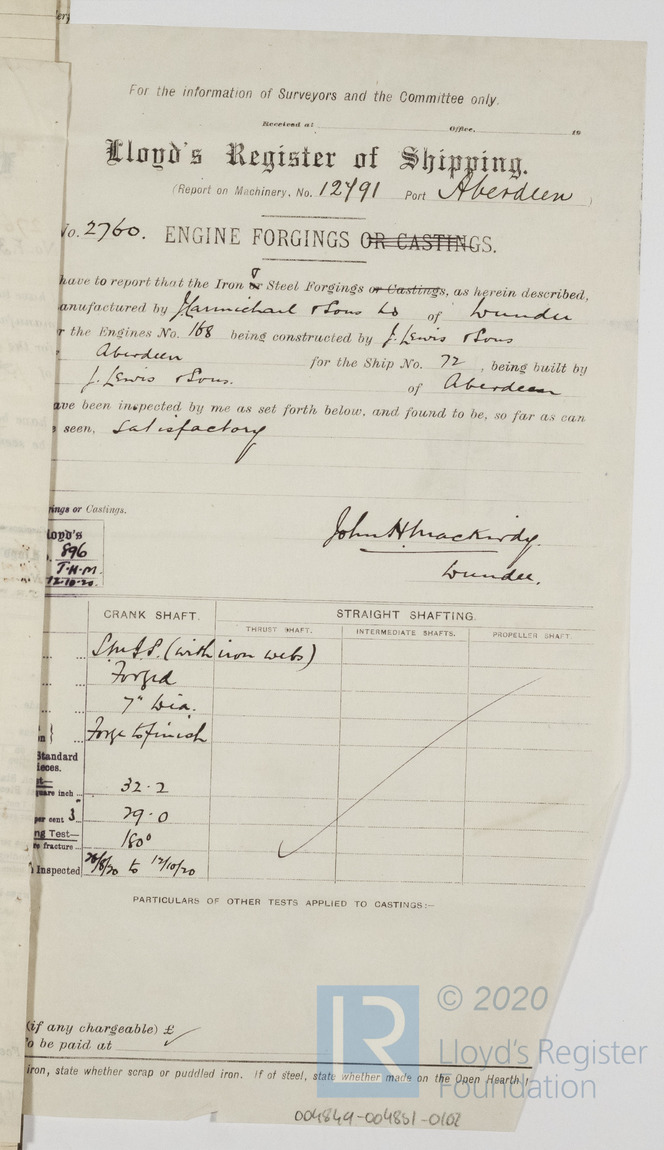 For the information of Surveyors and the Committee only.
Received at Office, 19
Lloyd's Register of Shipping.
(Report on Machinery, No. 12491 Port Aberdeen)
No. 2760. ENGINE FORGINGS OR CASTINGS.
have to report that the Iron & Steel Forgings or Castings, as herein described,
anufactured by J Carmichael & Sons Ld of Dundee
r the Engines No. 168 being constructed by J. Lewis & Sons
Aberdeen for the Ship No. 72, being built by
J. Lewis & Sons. of Aberdeen
ave been inspected by me as set forth below, and found to be, so far as can
e seen, satisfactory
ings or Castings.
loyd's
. 896
J.H.M.
12.10.20
John H. Mackirdy.
Dundee.
CRANK SHAFT. STRAIGHT SHAFTING.
THRUST SHAFT. INTERMEDIATE SHAFTS. PROPELLER SHAFT.
S.M.I.S. (with iron webs)
Forged
7" Dia.
on Forge to finish
Standard
ieces.
st—
quare inch 32.2
per cent 3" 29.0
ng Test—
re fracture 180°
Inspected 26/8/20 to 12/10/20
PARTICULARS OF OTHER TESTS APPLIED TO CASTINGS:—
(if any chargeable) £
o be paid at
iron, state whether scrap or puddled iron. If of steel, state whether made on the Open Hearth
© 2020
LR
Lloyd's Register
Foundation
004849-004851-0102